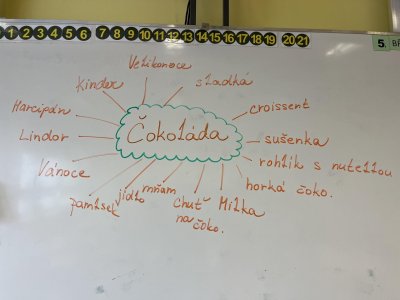 1 2 3 4 5 6 7 8 9 10 11 12 13 14 15 16 17 18 19 20 21
5.
Velikonoce
Kinder
sladká
Marcipán
croissent
Lindor
Čokoláda
sušenka
rohlík s nutellou
Vánoce
horká čoko.
pamlsek
jídlo
mňam
chuť
na
čoko.
Milka